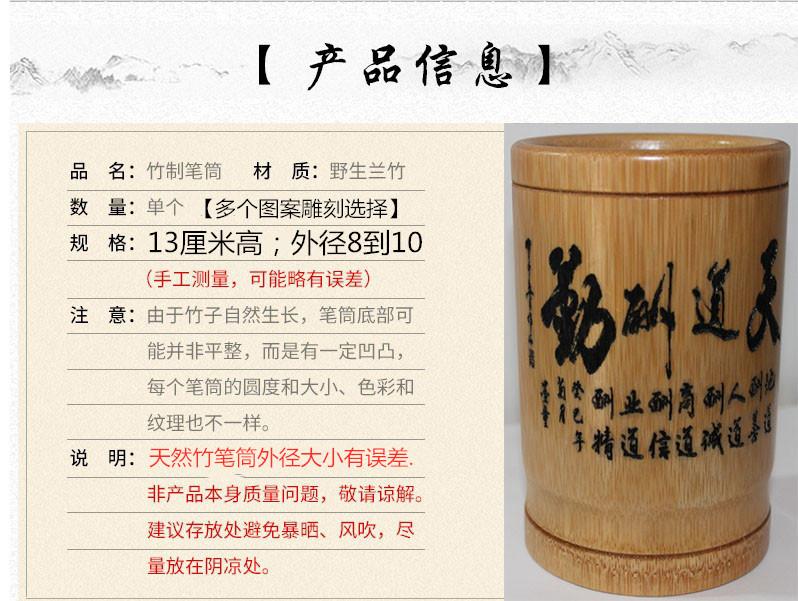 【产品信息】
品 名：竹制笔筒 材 质：野生兰竹
数 量：单个 【多个图案雕刻选择】
规 格：13厘米高；外径8到10
（手工测量，可能略有误差）
注 意：由于竹子自然生长，笔筒底部可
能并非平整，而是有一定凹凸，
每个笔筒的圆度和大小、色彩和
纹理也不一样。
说 明：天然竹笔筒外径大小有误差.
非产品本身质量问题，敬请谅解。
建议存放处避免暴晒、风吹，尽
量放在阴凉处。
天道酬勤
地道酬善
人道酬诚
商道酬信
业道酬精
癸巳年